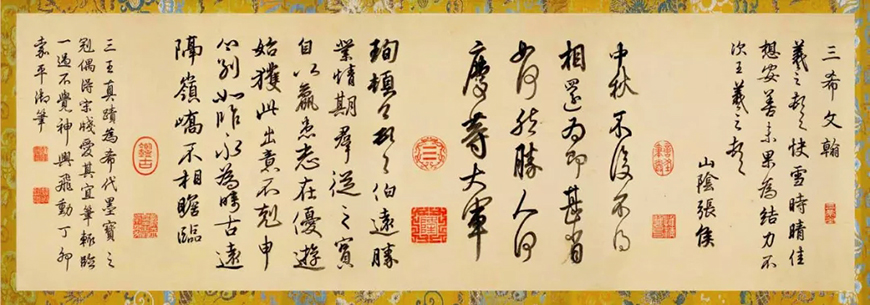 三希文翰
羲之頓首快雪時晴佳
想安善未果為結力不
次王羲之頓首
山陰張侯
中秋不復不得
相還為即甚省
如何然勝人何
慶等大軍
珣頓首頓首伯遠勝
業情期羣從之寶
自以羸患志在優遊
始獲此出意不剋申
分別如昨永為疇古遠
隔嶺嶠不相瞻臨
三王真蹟為希代墨寶之
冠偶得宋牋愛其宜筆輒臨
一過不覺神興飛動丁卯
嘉平御筆